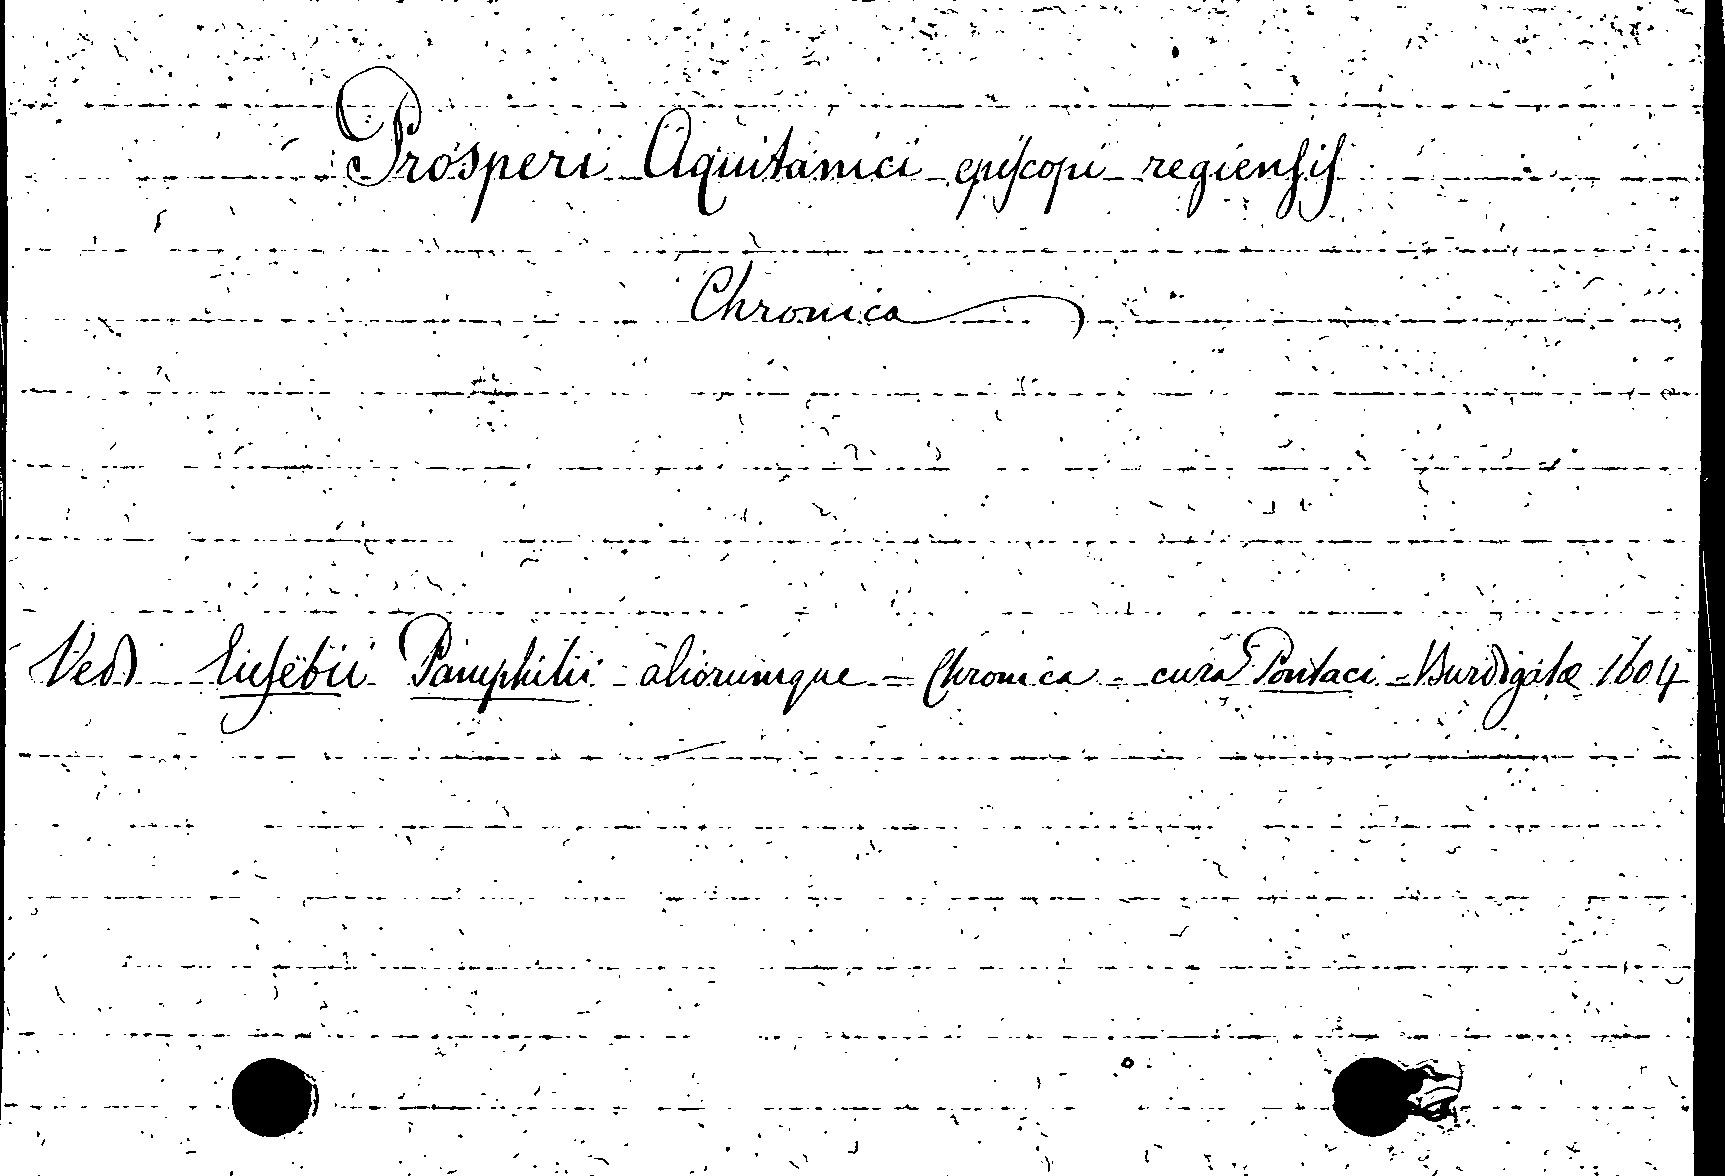 Prosperi Aquitanici episcopi regiensis
Chronica
Ved Eusebii Pamphilii aliorumque = Chronica - cura Pontaci - Burdigalæ 1604